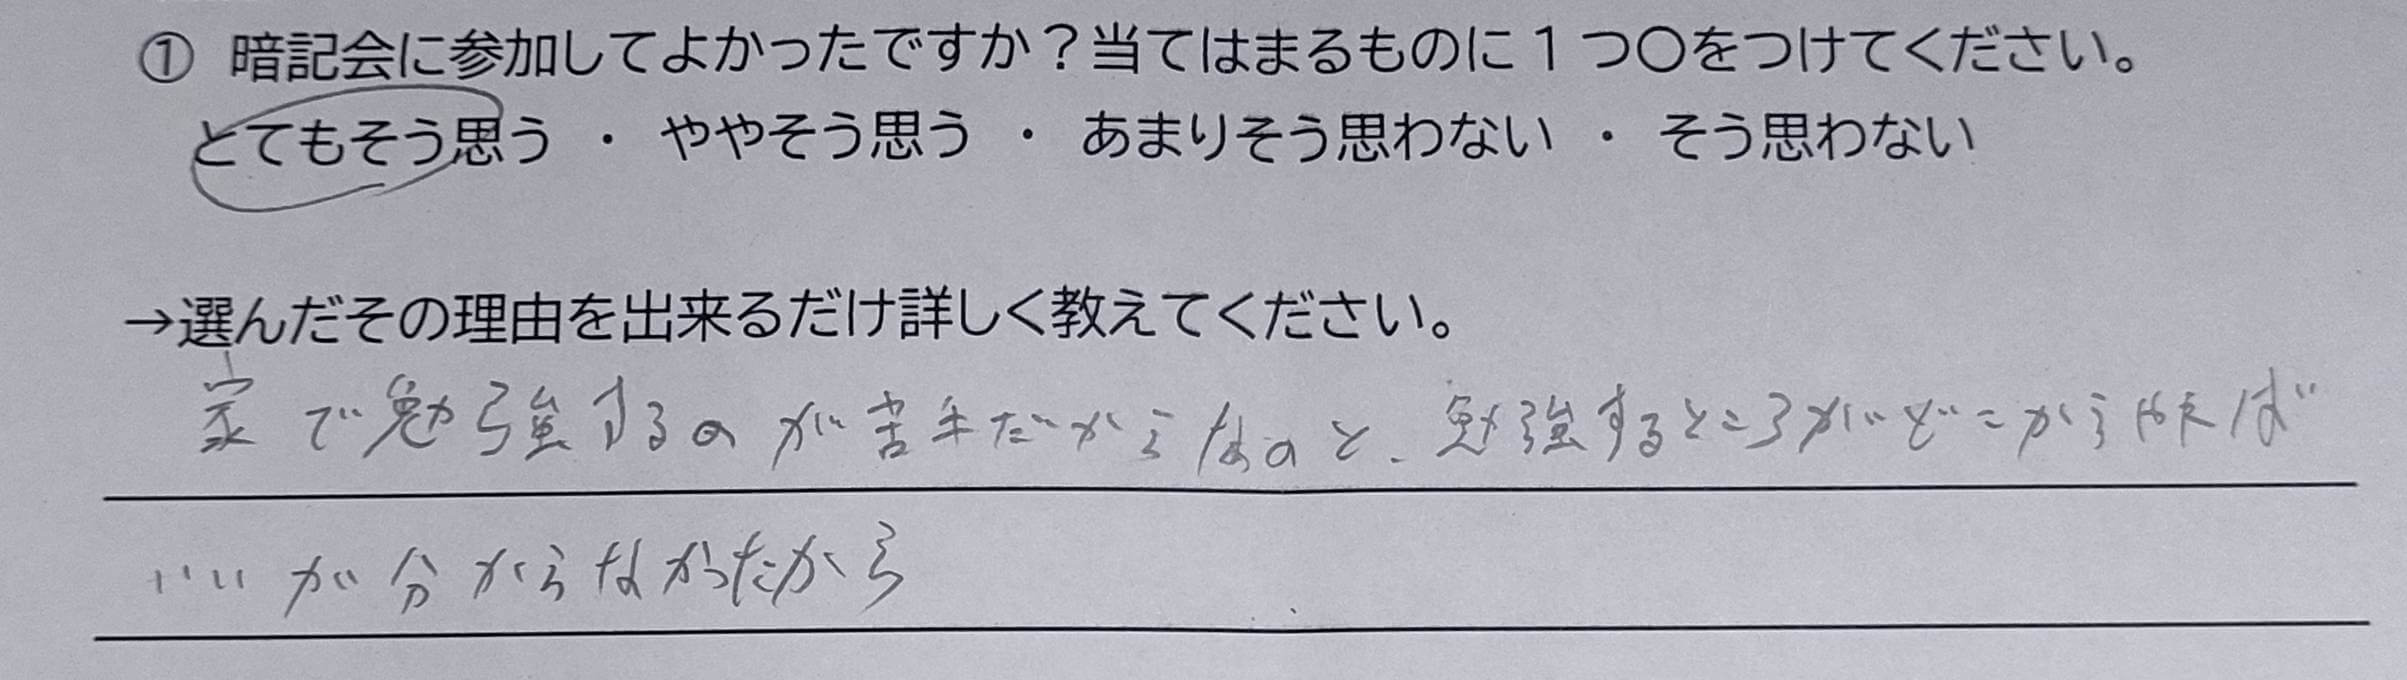 ① 暗記会に参加してよかったですか？当てはまるものに１つ〇をつけてください。
とてもそう思う ・ ややそう思う ・ あまりそう思わない ・ そう思わない
→選んだその理由を出来るだけ詳しく教えてください。
家で勉強するのが苦手だからなのと、勉強するところがどこから
いいが分からなかったから